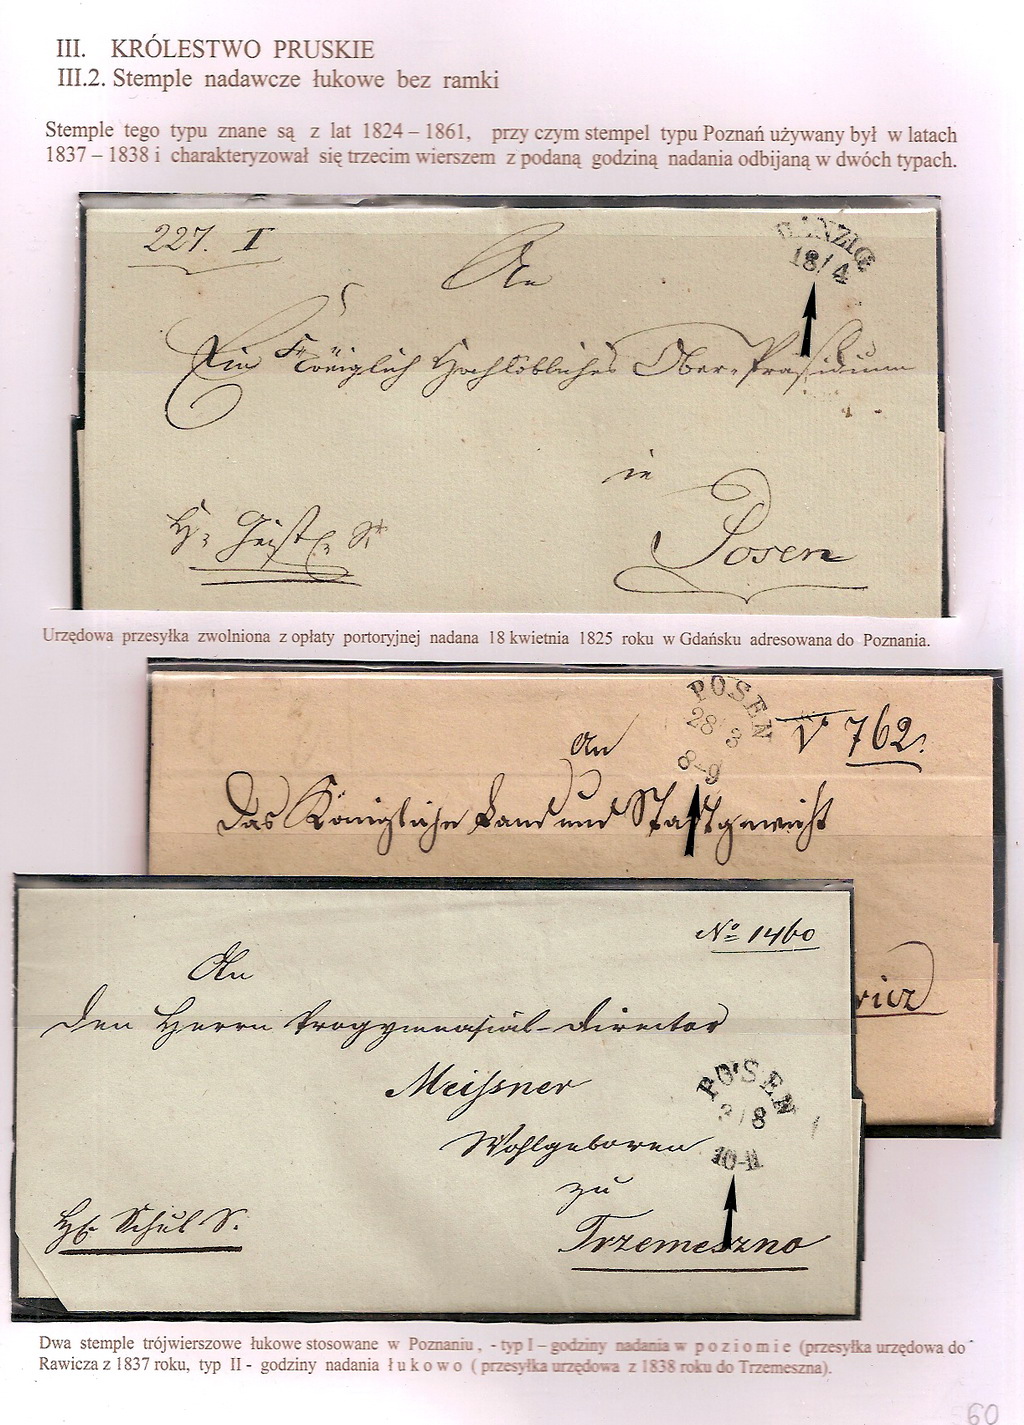 III. KRÓLESTWO PRUSKIE
III.2. Stemple nadawcze łukowe bez ramki
Stemple tego typu znane są z lat 1824 – 1861, przy czym stempel typu Poznań używany był w latach
1837 – 1838 i charakteryzował się trzecim wierszem z podaną godziną nadania odbijaną w dwóch typach.
227. I
DANZIG
18/4
An
Ein Königlich Hochlöbliches Ober-Präsidium
in
Posen
Urzędowa przesyłka zwolniona z opłaty portoryjnej nadana 18 kwietnia 1825 roku w Gdańsku adresowana do Poznania.
POSEN
28 3
8-9
V 762.
An
Das Königliche Land und Stadtgericht
wicz
No 1460
An
den Herrn Progymnasial-Director
Meissner
POSEN
3/8
10-11
Wohlgeboren
zu
Trzemeszno
Hf. Schul S.
Dwa stemple trójwierszowe łukowe stosowane w Poznaniu, - typ I – godziny nadania w p o z i o m i e (przesyłka urzędowa do
Rawicza z 1837 roku, typ II - godziny nadania ł u k o w o ( przesyłka urzędowa z 1838 roku do Trzemeszna).
60